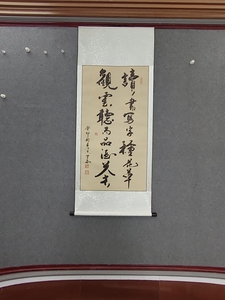 讀書寫字種花草
觀雲聽鳥品酒茶